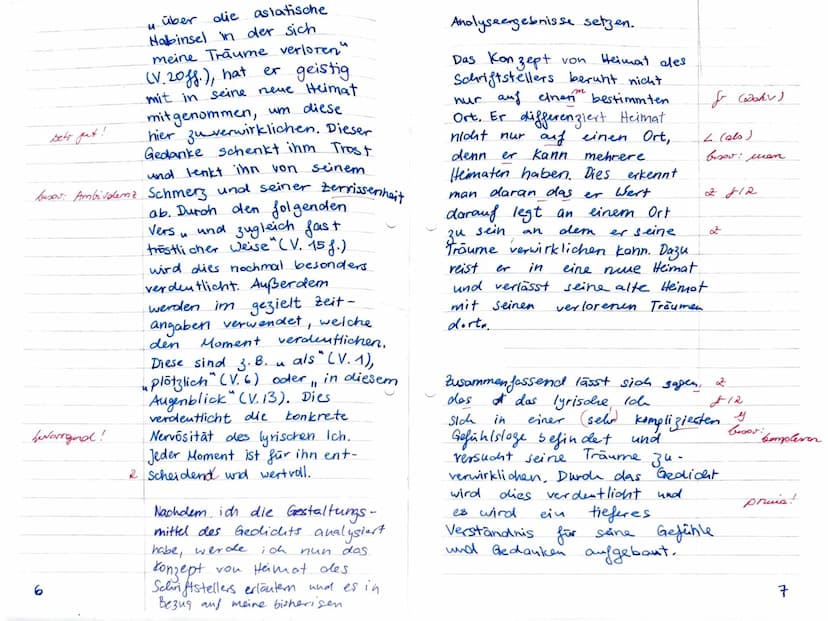 „über die asiatische
Halbinsel in der sich
meine Träume verloren"
(V.20ff.), hat er geistig
mit in seine neue Heimat
mitgenommen, um diese
sehr gut!
hier zu verwirklichen. Dieser
Gedanke schenkt ihm Trost
und lenkt ihn von seinem
besser: Ambivalenz
Schmerz und seiner Zerrissenheit
ab. Durch den folgenden
Vers „und zugleich fast
tröstlicher Weise" (V. 15f.)
wird dies nochmal besonders
verdeutlicht. Außerdem
werden im gezielt Zeit-
angaben verwendet, welche
den Moment verdeutlichen.
Diese sind z.B. „als" (V.1),
„plötzlich" (V.6) oder „in diesem
Augenblick" (V.13). Dies
verdeutlicht die konkrete
Nervösität des lyrischen Ich.
Jeder Moment ist für ihn ent-
scheidend und wertvoll.
Nachdem ich die Gestaltungs-
mittel des Gedichts analysiert
habe, werde ich nun das
Konzept von Heimat des
Schriftstellers erläutern und es in
Bezug auf meine bisherigen
6
Analyseergebnisse setzen.
Das Konzept von Heimat des
Schriftstellers beruht nicht
nur auf einen bestimmten
m
Ort. Er differenziert Heimat
nicht nur auf einen Ort,
(als)
denn er kann mehrere
besser: man
Heimaten haben. Dies erkennt
man daran das er Wert
darauf legt an einem Ort
zu sein an dem er seine
Träume verwirklichen kann. Dazu
reist er in eine neue Heimat
und verlässt seine alte Heimat
mit seinen verlorenen Träumen
dort.
Zusammenfassend lässt sich sagen,
das das lyrische Ich
sich in einer (sehr) kompliziesten
besser: komplexen
Gefühlslage befindet und
versucht seine Träume zu-
verwirklichen. Durch das Gedicht
wird dies verdeutlicht und
es wird ein tieferes
Verständnis für seine Gefühle
und Gedanken aufgebaut.
7